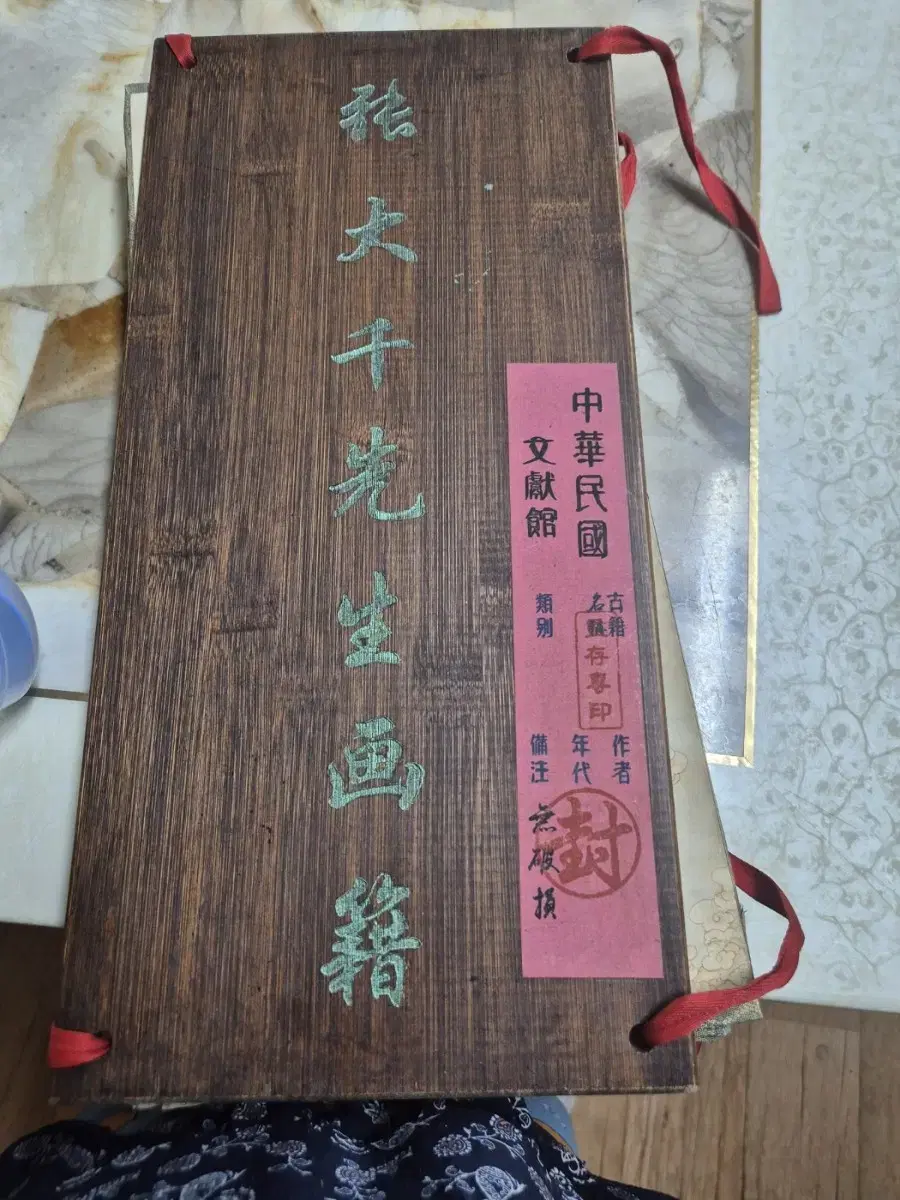 张大千先生画籍
中華民國
文獻館
古籍
名
類别
存專印
作者
年代
備注
無破損
封